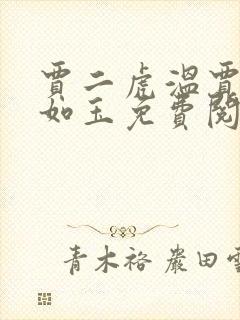 賈二虎溫賈
如玉免費閱
青木裕 嚴田雪